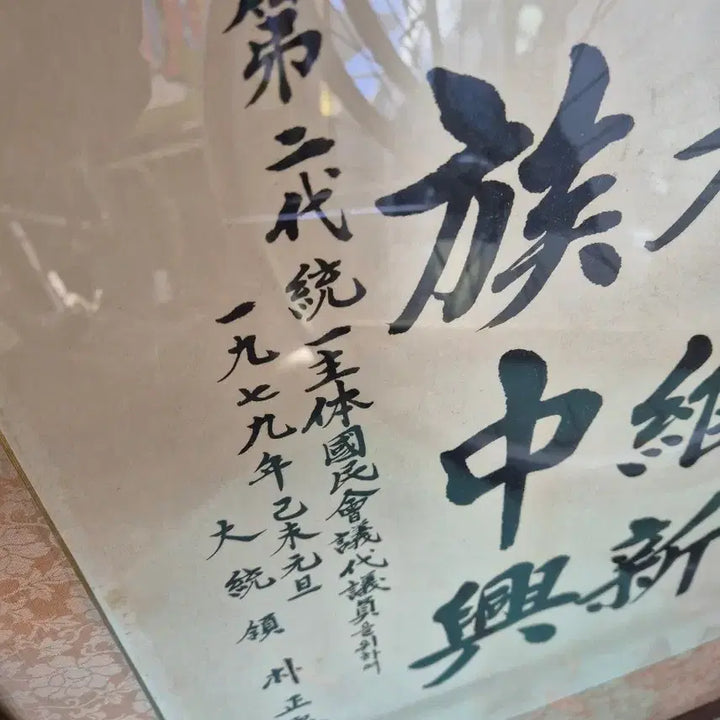 維新
族中興
第二代統一主体國民會議代議員을위하여
一九七九年己未元旦
大統領 朴正